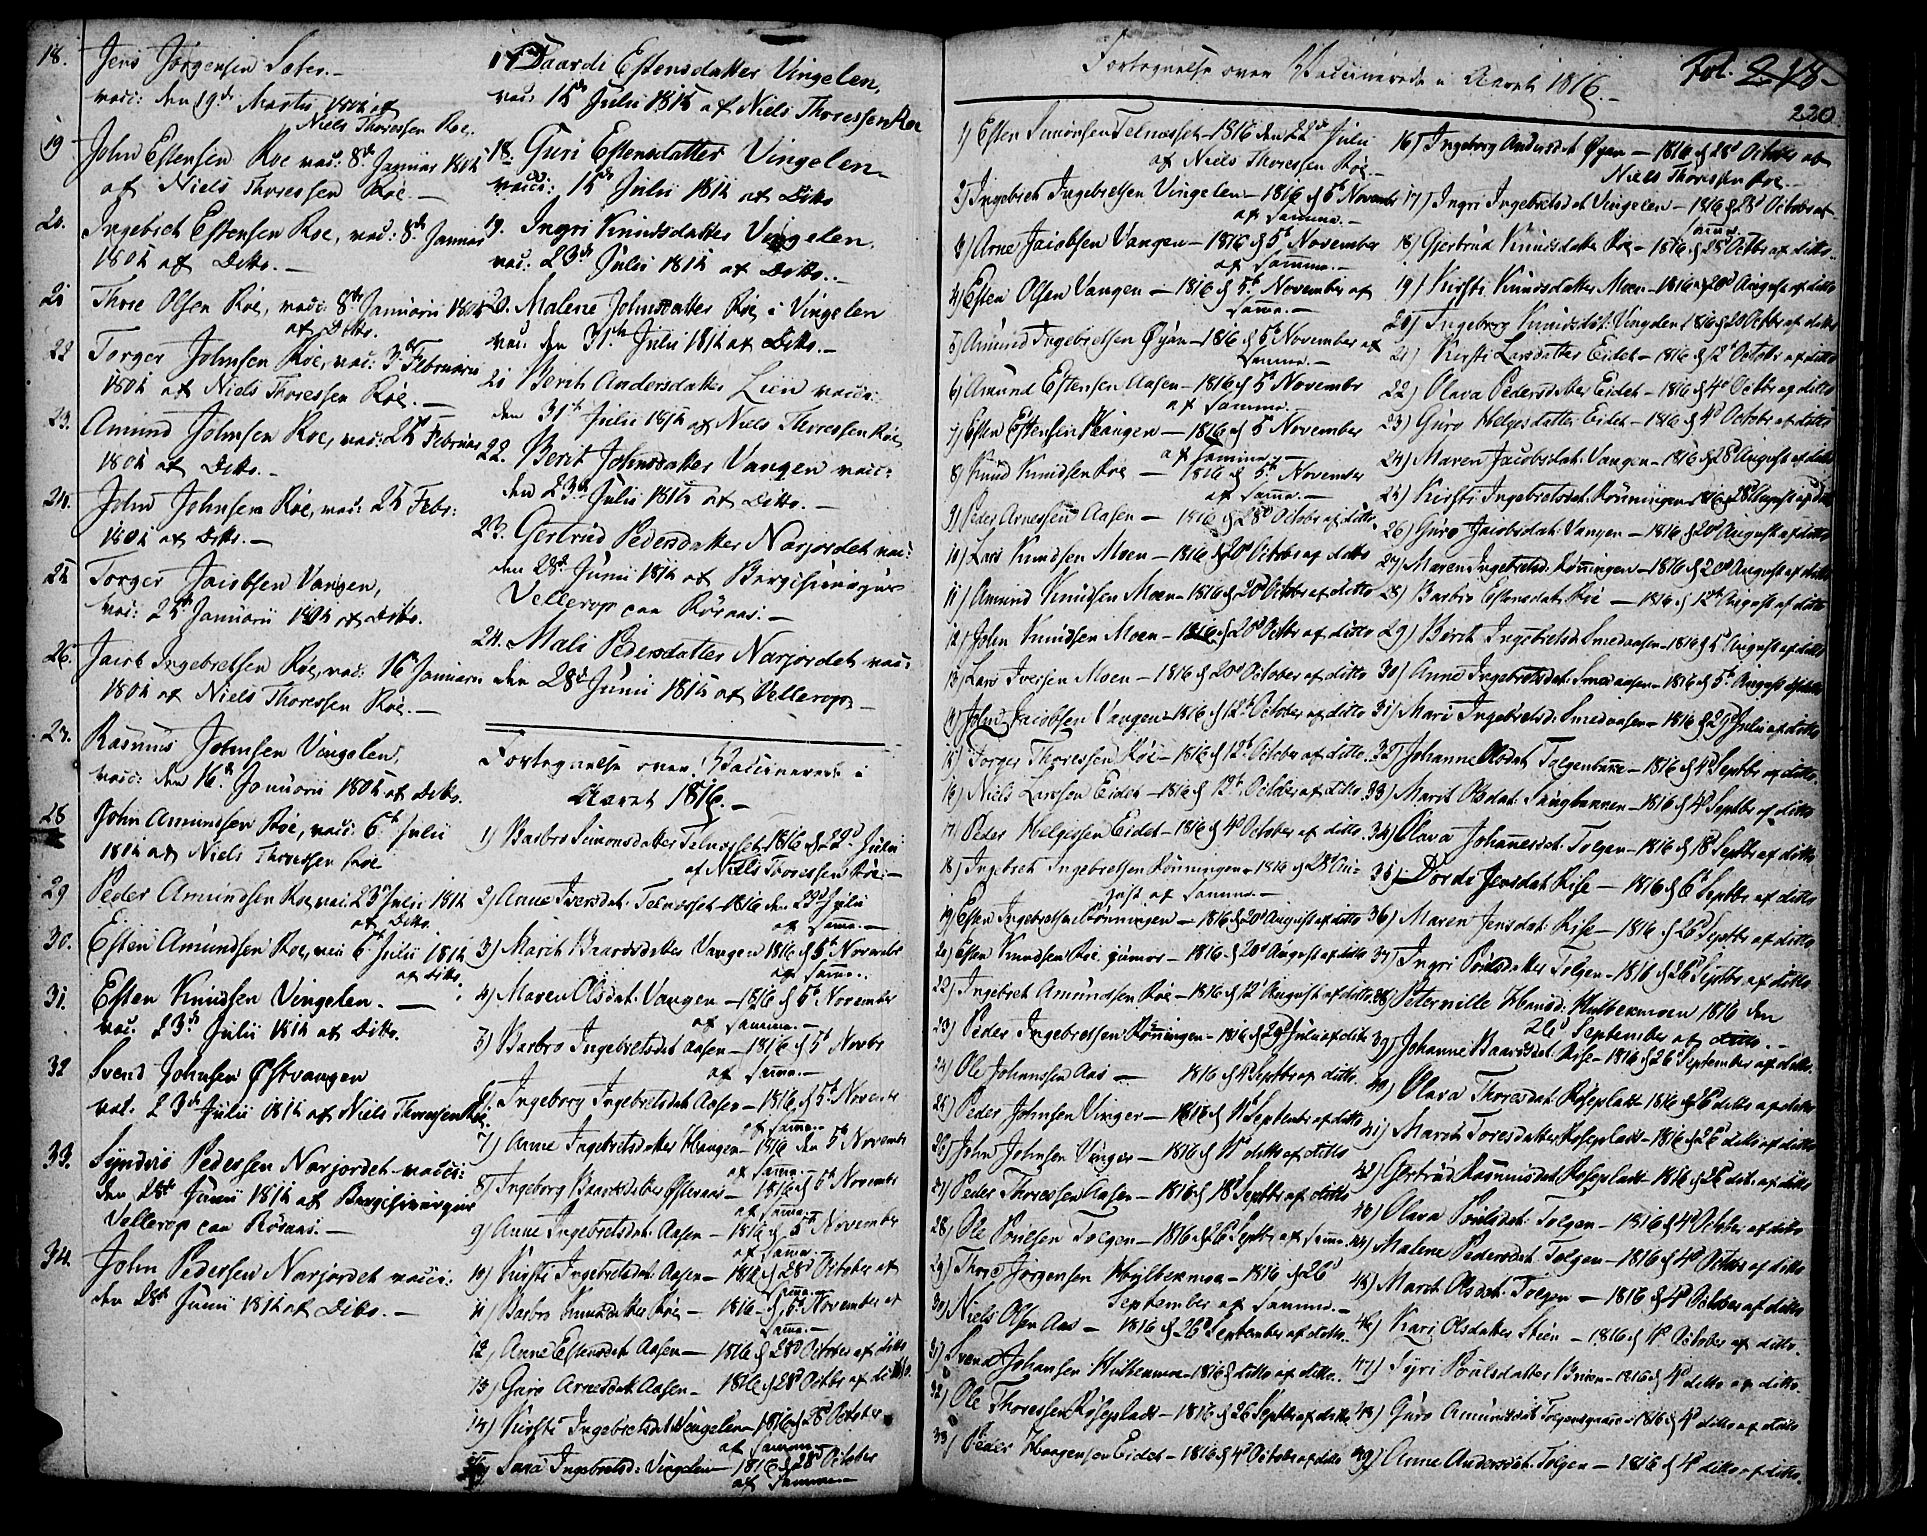 18. Jens Jørgensen
vacc: den 19de Martii af
Niels Thoressen Røe.
19 John Estensen Røe vac: 8de Januar
af Niels Thoressen Røe.—
20. Ingebret Estensen Røe, vac: 8de Januar
af Ditto.—
21 Thore Olsen Røe, vacc: 8de Januarii
af Ditto.
22 Torger Johnsen Røe, vac: 3de Februarii
af Niels Thoressen Røe.—
23. Amund Johnsen Røe, vac: Februar
af Ditto.—
24. John Johnsen Røe, vac: Febr:
af Ditto.—
25 Torger Jacobsen Vangen,
vac: Januarii af Ditto.
26. Jacob Ingebretsen Røe, vac: 16de Januarii
af Niels Thoressen Røe.—
27. Rasmus Johnsen Vingelen,
vacc: den 16de Januarii af Ditto.
28 John Amundsen Røe, vacc: 6te Julii
af Niels Thoressen Røe
29 Peder Amundsen Røe, vac: 23de Julii
af Ditto.
30. Esten Amundsen Røe, vac: 6te Julii
af Ditto.
31. Esten Knudsen Vingelen.—
vac. 23de Julii af Ditto.
32 Svend Johnsen Østvangen
vac. 23de Julii af Niels Thoressen Røe.
33. Pedersen Narjordet vacc:
den 28de Junii af Bergchirurgus
Vellerop paa Röraas.—
34. John Pedersen Narjordet vacc:
den 28de Junii af Ditto.—
17 Estensdatter Vingelen,
vac: Julii af Niels Thoressen Røe
18. Guri Estensdatter Vingelen—
vacc: Julii af Ditto
19. Ingri Knudsdatter Vingelen,
vac: 23de Julii af Ditto.—
20. Malene Johnsdatter Røe i Vingelen
vac: den 31te Julii af Ditto.—
21 Berit Andersdatter Lien vacc:
den 31te Julii af Niels Thoressen Røe,
22. Berit Johnsdatter Vangen vacc:
den 23de Julii af Ditto.—
23. Gertrud Pedersdatter Narjordet vac:
den 28de Junii af Bergchirurgus
Vellerop paa Röraas.—
24. Mali Pedersdatter Narjordet vac:
den 28de Junii af Vellerop—
Fortegnelse over Vaccinerede i
Aaret 1816.—
1) Barbro Simonsdatter Telnæsset 1816 d 22d Julii
af Niels Thoressen Røe.—
2) Anne Iversdat. Telnæsset 1816 den Julii
af samme.—
3) Marit Baardsdatter Vangen 1816 d 5t November
af samme.
4) Maren Olsdat. Vangen—1816 d 5t November
af samme.—
5) Barbro Ingebretsdat Aasen—1816 d 5t Novbr
af samme.—
6) Ingeborg Ingebretsdat Aasen—1816 d 5t Novembr
af samme.—
7) Anne Ingebretsdatter Haugen—1816 den 5t November
af samme.—
8) Ingeborg Baardsdatter 1816 d November
af samme.—
9) Anne Ingebretsdat. Aasen—1816 d 5t November
af samme.—
10) Kirsti Ingebretsdat. Aasen—1816 d 28d October af
samme.—
11) Barbro Knudsdatter Røe—1816 d November af
samme.—
12) Anne Estensdat Aasen—1816 d 28d October af ditto
13) Guro Arnesdat. Aasen—1816 d 28d Octbr af ditto.
14) Kirsti Ingebretsdat Vingelen—1816 d 28d October
af samme—
15) Ingebretsd: Vingelen—1816 d 28d October
af samme—
Fortegnelse over Vaccinerede i Aaret 1816.—
Fol. 218.
220
1) Esten Simonsen Telnæsset—1816 den 22de Julii
af Niels Thoressen Røe.—
2) Ingebret Ingebretsen Vingelen—1816 d November
af samme.—
3) Arne Jacobsen Vangen—1816 d 5t November
af samme.—
4) Esten Olsen Vangen—1816 d 5t November af
samme.—
5) Amund Ingebretsen Øyan—1816 d 5t November af
samme.—
6) Amund Estensen Aasen—1816 d 5t November
af samme.—
7) Esten Estensen Haugen—1816 d 5t November
af samme.—
8) Knud Knudsen Røe—1816 d 5t November
af samme.—
9) Peder Arnessen Aasen—1816 d 28d Octobr af ditto.
10) Lars Knudsen Moen—1816 d 20d October af ditto
11) Amund Knudsen Moen—1816 d 20d Octobr af ditto
12) John Knudsen Moen—1816 d 20d Octbr af ditto
13) Lars Iversen Moen—1816 d 20d October af ditto
14) John Jacobsen Vangen—1816 d 12t October af ditto
15) Torger Thoressen Røe—1816 d 12t October af ditto.
16) Niels Larssen Eidet—1816 d 12t October af ditto
17) Peder Helgessen Eidet—1816 d 4d October af ditto.
18) Ingebret Ingebretsen Rönningen—1816 d 28d Au-
gust af samme.—
19) Esten Ingebretsen Rönningen—1816 d 20d August af ditto
21) Esten Knudsen Røe junior—1816 d 20d August af ditto
22) Ingebret Amundsen Røe—1816 d 12t August af ditto.
23) Peder Ingebretsen Rönningen—1816 d 29d Julii af ditto
24) Ole Johanssen Aas—1816 d 4d Septbr af ditto.
25) Peder Johnsen Vinger—1816 d 4d Septembr af ditto
26) John Johnsen Vinger—1816 d ditto af ditto
27) Peder Thoressen Aasen—1816 d 18d Septbr af ditto
28) Ole Poulsen Tolgen—1816 d 26d Septbr af samme.
29) Thore Jørgensen —1816 d 26d
September af samme.—
30) Niels Olsen Aas—1816 d 26d September af ditto.
31) Svend Johansen —1816 d ditto af ditto.
32) Ole Thoressen Røsepladt—1816 d 26 Septbr af ditto
33) Peder Haagensen Eidet—1816 d 4d October af ditto
16) Ingeborg Andersdat Øyan—1816 d 28d October af
Niels Thoressen Røe—
17) Ingri Ingebretsdat Vingelen—1816 d 28d October af
samme
18) Giertrud Knudsdatter Røe—1816 d 28d Octbr af ditto.
19) Kirsti Knudsdatter Moen—1816 d 20d August af ditto
20) Ingeborg Knudsdat. Vingelen 1816 d 20 Octbr af ditto
21) Kirsti Larsdatter Eidet—1816 d 12t Octobr af ditto
22) Olava Pedersdatter Eidet—1816 d 4d Octbr af ditto
23) Guro Helgesdatter Eidet—1816 d 4d Octobr af ditto
24) Maren Jacobsdat. Vangen—1816 d 28 August af ditto
25) Kirsti Ingebretsdat. Rönningen—1816 d 28d August af ditto
26) Guro Jacobsdat. Vangen—1816 d 20d August af ditto
27) Maren Ingebretsd. Rönningen—1816 d 20d August af ditto
28) Barbro Estensdat. Røe—1816 d 12t August af ditto
29) Berit Ingebretsdat. Smedaasen—1816 d 5t August af ditto
30) Anne Ingebretsdat. Smedaasen—1816 d 5t August af ditto
31) Mari Ingebretsd. Smedaasen—1816 d 29d Julii af ditto
32) Johanne Olsdat —1816 d 4d Septbr af ditto.
33) Marit Olsdat. —1816 d 4d Septbr af ditto
34) Olava Johannesdat. Tolgen—1816 d 18d Septbr af ditto
35) Dordi Jensdat Rise—1816 d Septbr af ditto
36) Maren Jensdat. Rise—1816 d 26d Septbr af ditto
37) Ingri Poulsdatter Tolgen—1816 d 26d Septbr af ditto
38) Peternille Hansd: 1816 den
26d September af ditto.—
39) Johanne Baardsdat. Rise—1816 d 26d September af ditto.
40) Olava Thoresdat. Røsepladt 1816 d ditto af ditto
41) Marit Toresdatter Røsepladt—1816 d 26d ditto af ditto
42) Gertrud Rasmusdat Røsepladt—1816 d 26 ditto af ditto
43) Olava Poulsdat. Tolgen—1816 d 4d October af ditto
44) Malene Pedersdat. Tolgen—1816 d 4d October af ditto
45) Marit Olsdat. Tolgen—1816 d 4d October af ditto
46) Kari Olsdatter —1816 d October af ditto.
47) Syri Poulsdatter —1816 d 4d ditto af ditto.
48) Guro Amundsdat —1816 d 4d ditto af ditto
49) Anne Andersdat. Tolgen—1816 d 4d ditto af ditto.